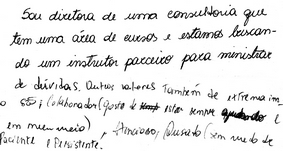 Sou diretora de uma consultoria que
tem uma área de cursos e estamos buscan-
do um instrutor parceiro para ministrar
de dúvidas. Outros valores também de extrema im-
o sss; Colaborador (gosta de estar sempre
em movimento), Atencioso, Ousado (sem medo de
Paciente e Persistente.